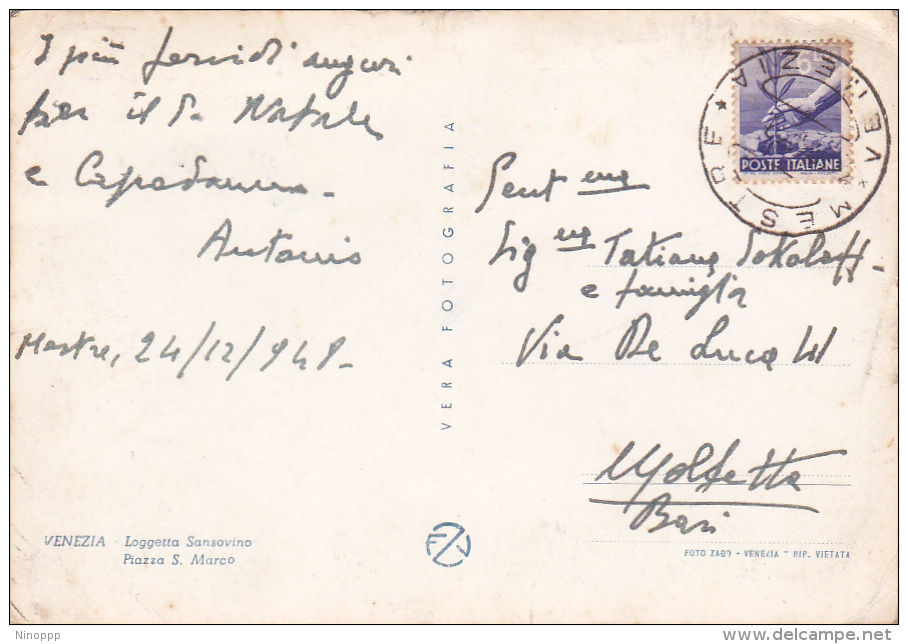 I più fervidi auguri
per il S. Natale
e Capodanno -
Antonio
Mestre, 24/12/948 -
VENEZIA · Loggetta Sansovino
Piazza S. Marco
VERA FOTOGRAFIA
FZV
POSTE ITALIANE
VENEZIA * MESTRE *
Gent ma
Sig na Tatiana Sokoloff -
e famiglia
Via De Luca
Molfetta
Bari
FOTO ZAGO - VENEZIA - RIP. VIETATA
Ninoppp
delcampe.net